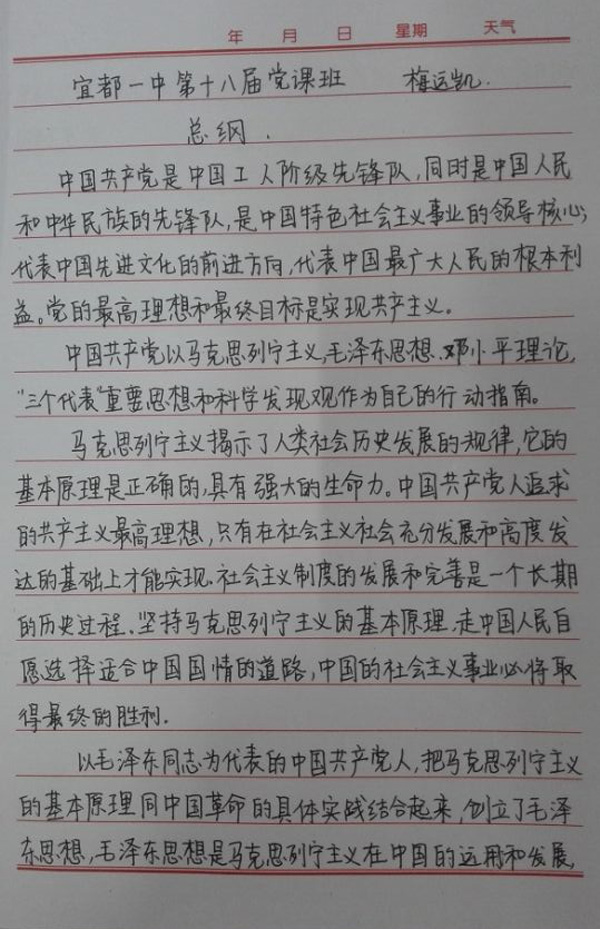 年 月 日 星期 天气
宜都一中第十八届党课班 梅远凯
总纲.
中国共产党是中国工人阶级先锋队,同时是中国人民
和中华民族的先锋队,是中国特色社会主义事业的领导核心;
代表中国先进文化的前进方向,代表中国最广大人民的根本利
益。党的最高理想和最终目标是实现共产主义。
中国共产党以马克思列宁主义,毛泽东思想、邓小平理论,
“三个代表”重要思想和科学发现观作为自己的行动指南。
马克思列宁主义揭示了人类社会历史发展的规律,它的
基本原理是正确的,具有强大的生命力。中国共产党人追求
的共产主义最高理想,只有在社会主义社会充分发展和高度发
达的基础上才能实现.社会主义制度的发展和完善是一个长期
的历史过程.坚持马克思列宁主义的基本原理,走中国人民自
愿选择适合中国国情的道路,中国的社会主义事业必将取
得最终的胜利.
以毛泽东同志为代表的中国共产党人,把马克思列宁主义
的基本原理同中国革命的具体实践结合起来,创立了毛泽
东思想,毛泽东思想是马克思列宁主义在中国的运用和发展,